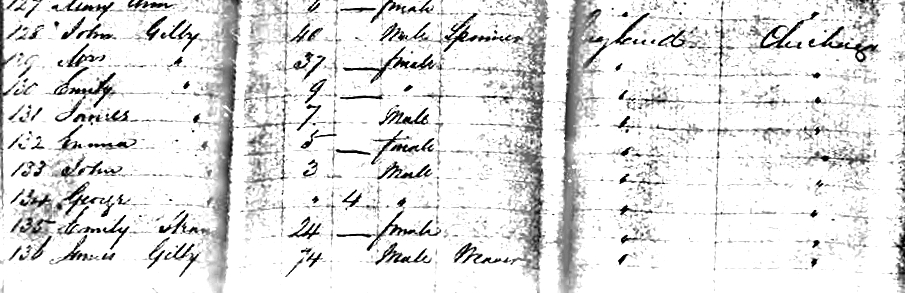 127 Mary Ann 6 — female
128 John Gilby 40 Male Spinner England
129 Mrs " 37 — female " "
130 Emily " 9 — " " "
131 James " 7 Male " "
132 Emma " 5 — female " "
133 John 3 Male " "
134 George " 4 " " "
135 Emily 24 — female " "
136 James Gilby 74 Male Weaver " "